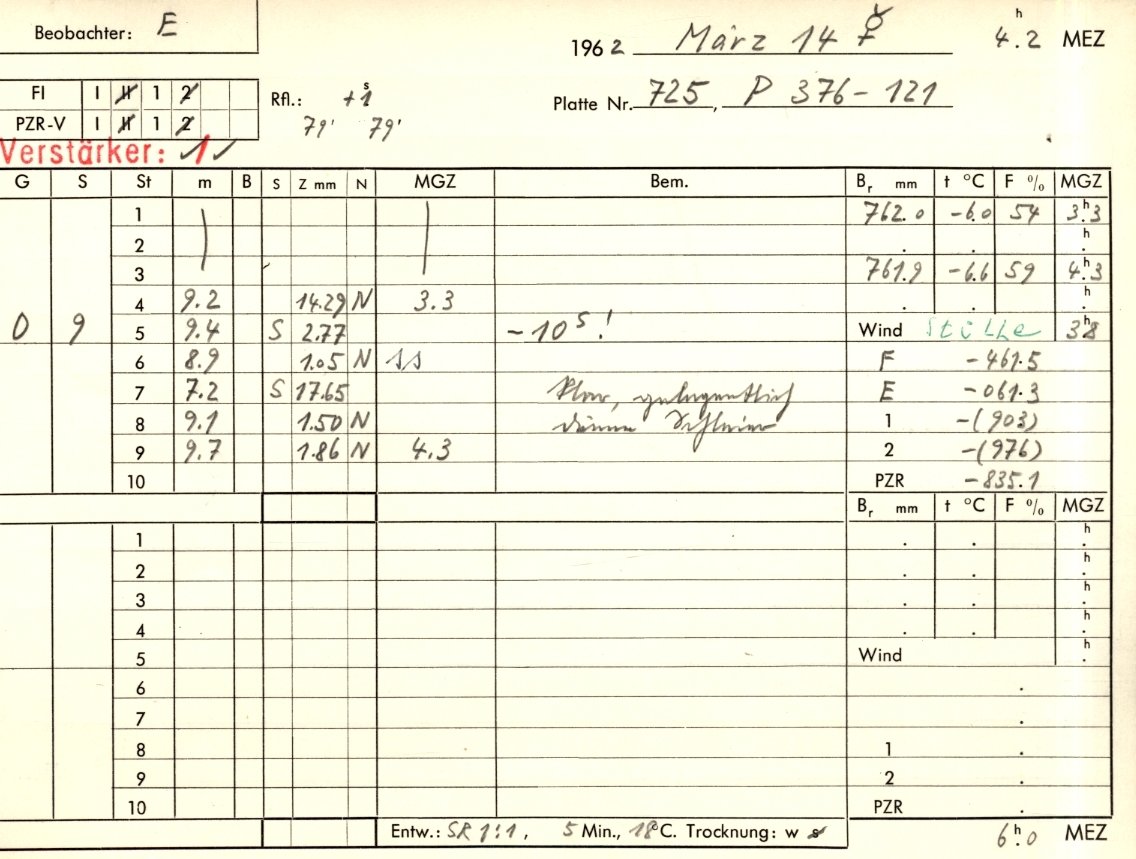 Beobachter: E
1962 März 14 ☿ 4.2 h MEZ
FI I II 1 2
PZR-V I II 1 2
Rfl.: +1 s
79' 79'
Platte Nr. 725, P 376-121
Verstärker: 1 ✓
G S St m B S Z mm N MGZ Bem. Br mm t °C F % MGZ
1 762.0 -6.0 54 3.3 h
2 . . . h
3 761.9 -6.6 59 4.3 h
4 9.2 14.29 N 3.3 . . . h
0 9 5 9.4 S 2.77 -10 s! Wind Stille 3.8 h
6 8.9 1.05 N F -461.5
7 7.2 S 17.65 Klar, gelegentlich E -061.3
8 9.1 1.50 N dünne Schleier 1 -(903)
9 9.7 1.86 N 4.3 2 -(976)
10 PZR -835.1
Br mm t °C F % MGZ
1 . . . h
2 . . . h
3 . . . h
4 . . . h
5 Wind . h
6 .
7 .
8 1 .
9 2 .
10 PZR .
Entw.: SR 1:1, 5 Min., 18°C. Trocknung: w s 6.0 h MEZ